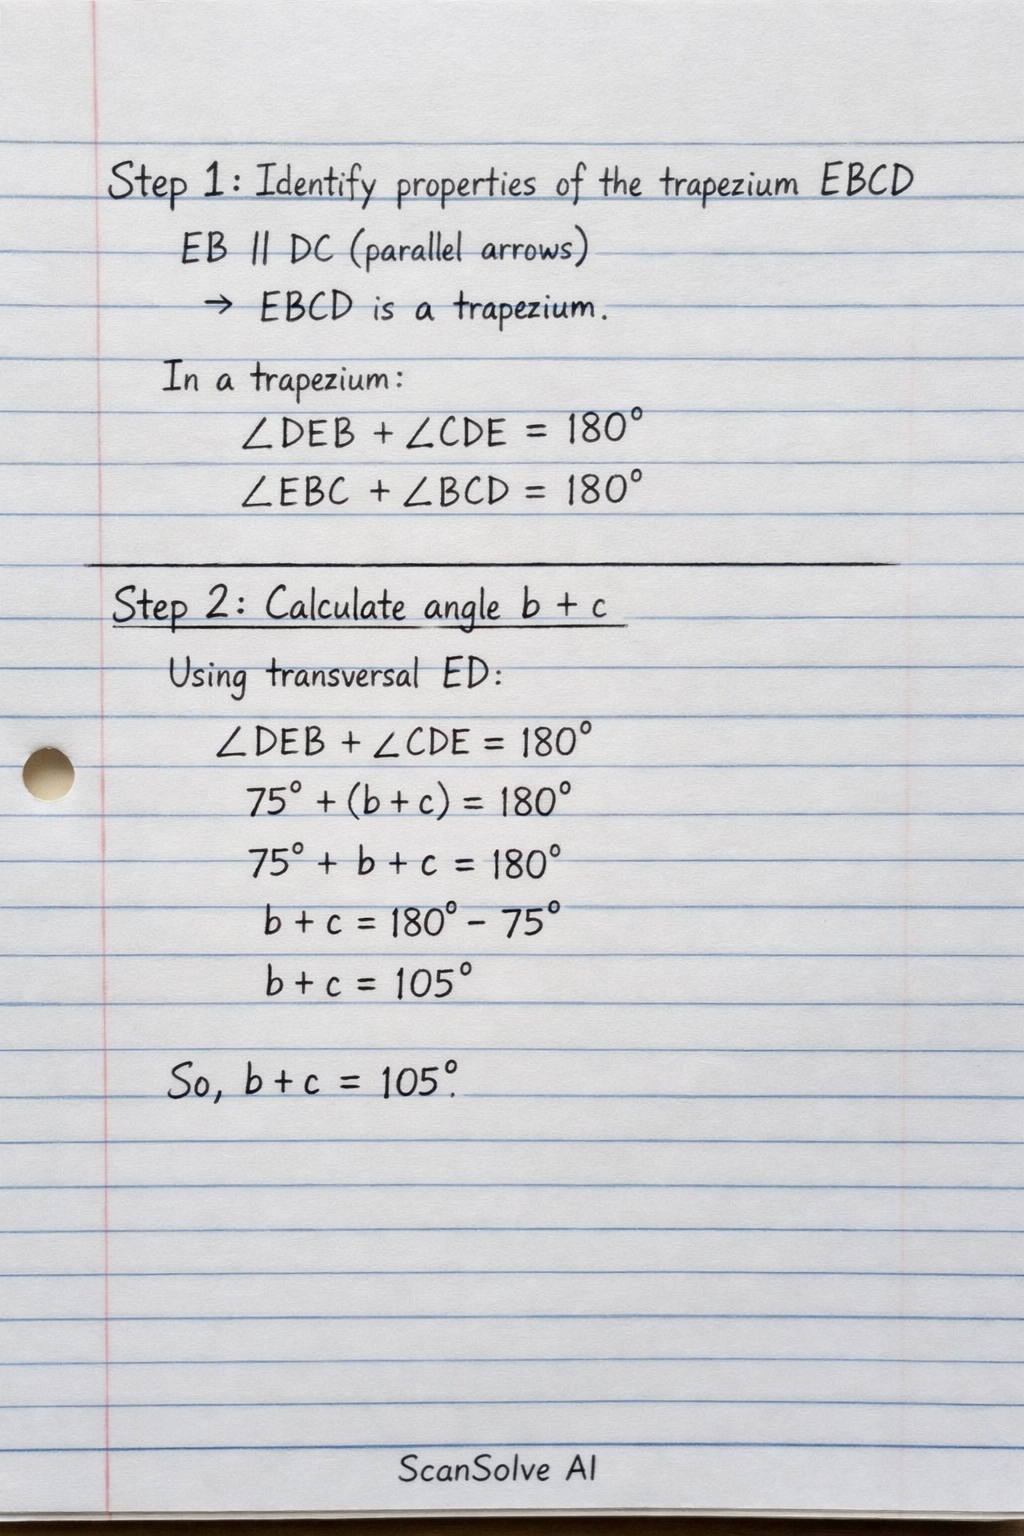 Step 1: Identify properties of the trapezium EBCD
EB || DC (parallel arrows)
→ EBCD is a trapezium.
In a trapezium:
∠DEB + ∠CDE = 180°
∠EBC + ∠BCD = 180°
Step 2: Calculate angle b + c
Using transversal ED:
∠DEB + ∠CDE = 180°
75° + (b + c) = 180°
75° + b + c = 180°
b + c = 180° - 75°
b + c = 105°
So, b + c = 105°.
ScanSolve AI